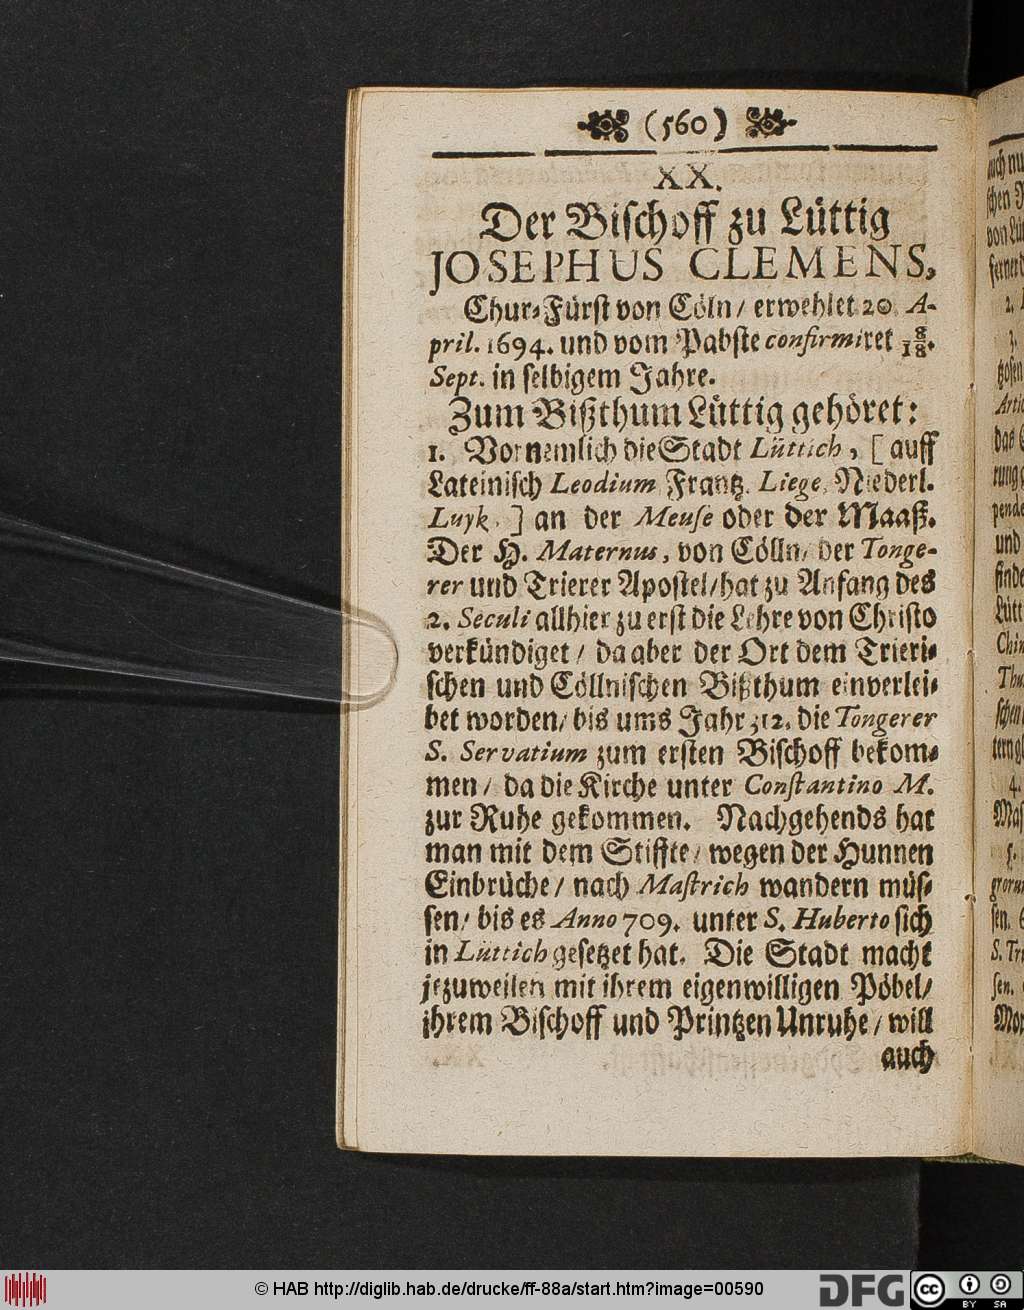 (560)
XX.
Der Bischoff zu Lüttig
JOSEPHUS CLEMENS,
Chur-Fürst von Cöln/ erwehlet 20 A-
pril. 1694. und vom Pabste confirmiret 8/18.
Sept. in selbigem Jahre.
Zum Bißthum Lüttig gehöret:
1. Vornemlich die Stadt Lüttich, [auff
Lateinisch Leodium, Frantz. Liege, Niederl.
Luyk,] an der Meuse oder der Maaß.
Der H. Maternus, von Cölln/ der Tonge-
rer und Trierer Apostel/ hat zu Anfang des
2. Seculi allhier zu erst die Lehre von Christo
verkündiget/ da aber der Ort dem Trieri-
schen und Cöllnischen Bißthum einverlei-
bet worden/ bis ums Jahr 312. die Tongerer
S. Servatium zum ersten Bischoff bekom-
men/ da die Kirche unter Constantino M.
zur Ruhe gekommen. Nachgehends hat
man mit dem Stiffte/ wegen der Hunnen
Einbrüche/ nach Mastrich wandern müs-
sen/ bis es Anno 709. unter S. Huberto sich
in Lüttich gesetzet hat. Die Stadt macht
jezuweilen mit ihrem eigenwilligen Pöbel/
ihrem Bischoff und Printzen Unruhe/ will
auch
auch nu
von Lü
2.
3.
das
und
4.
© HAB http://diglib.hab.de/drucke/ff-88a/start.htm?image=00590
DFG
cc
BY SA